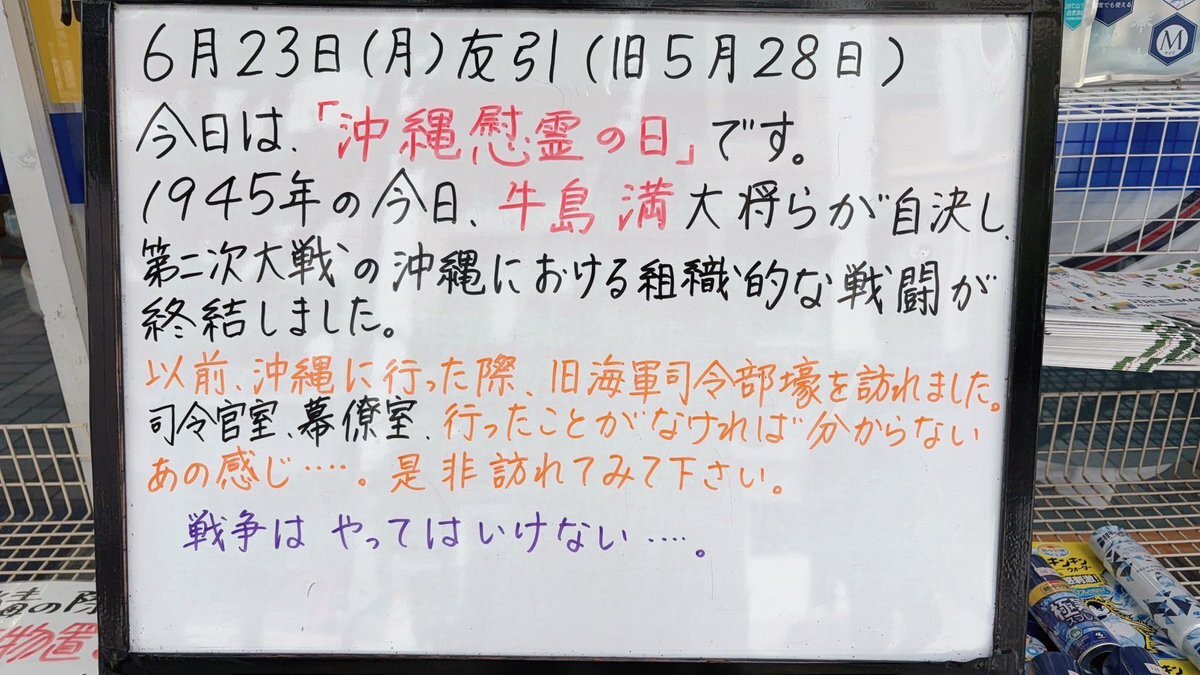 6月23日(月)友引(旧5月28日)
今日は、「沖縄慰霊の日」です。
1945年の今日、牛島満大将らが自決し、
第二次大戦の沖縄における組織的な戦闘が
終結しました。
以前、沖縄に行った際、旧海軍司令部壕を訪れました。
司令官室、幕僚室、行ったことがなければ分からない
あの感じ‥‥。是非訪れてみて下さい。
戦争はやってはいけない‥‥。
の際
物置
M
キンキン
極